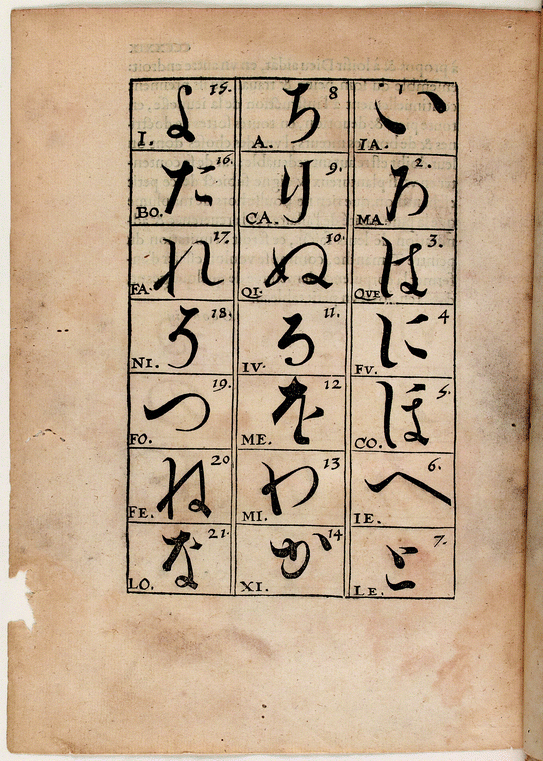 い IA.
2. ろ MA
3. は QVE
4 に FV.
5. ほ CO.
6. へ IE.
7. と LE.
8 ち A.
9. り CA.
10. ぬ QI.
11. る IV.
12 を ME.
13 わ MI.
14 か XI.
15. よ I.
16. た BO.
17. れ FA.
18. そ NI.
19. つ FO.
20 ね FE.
21. な LO.